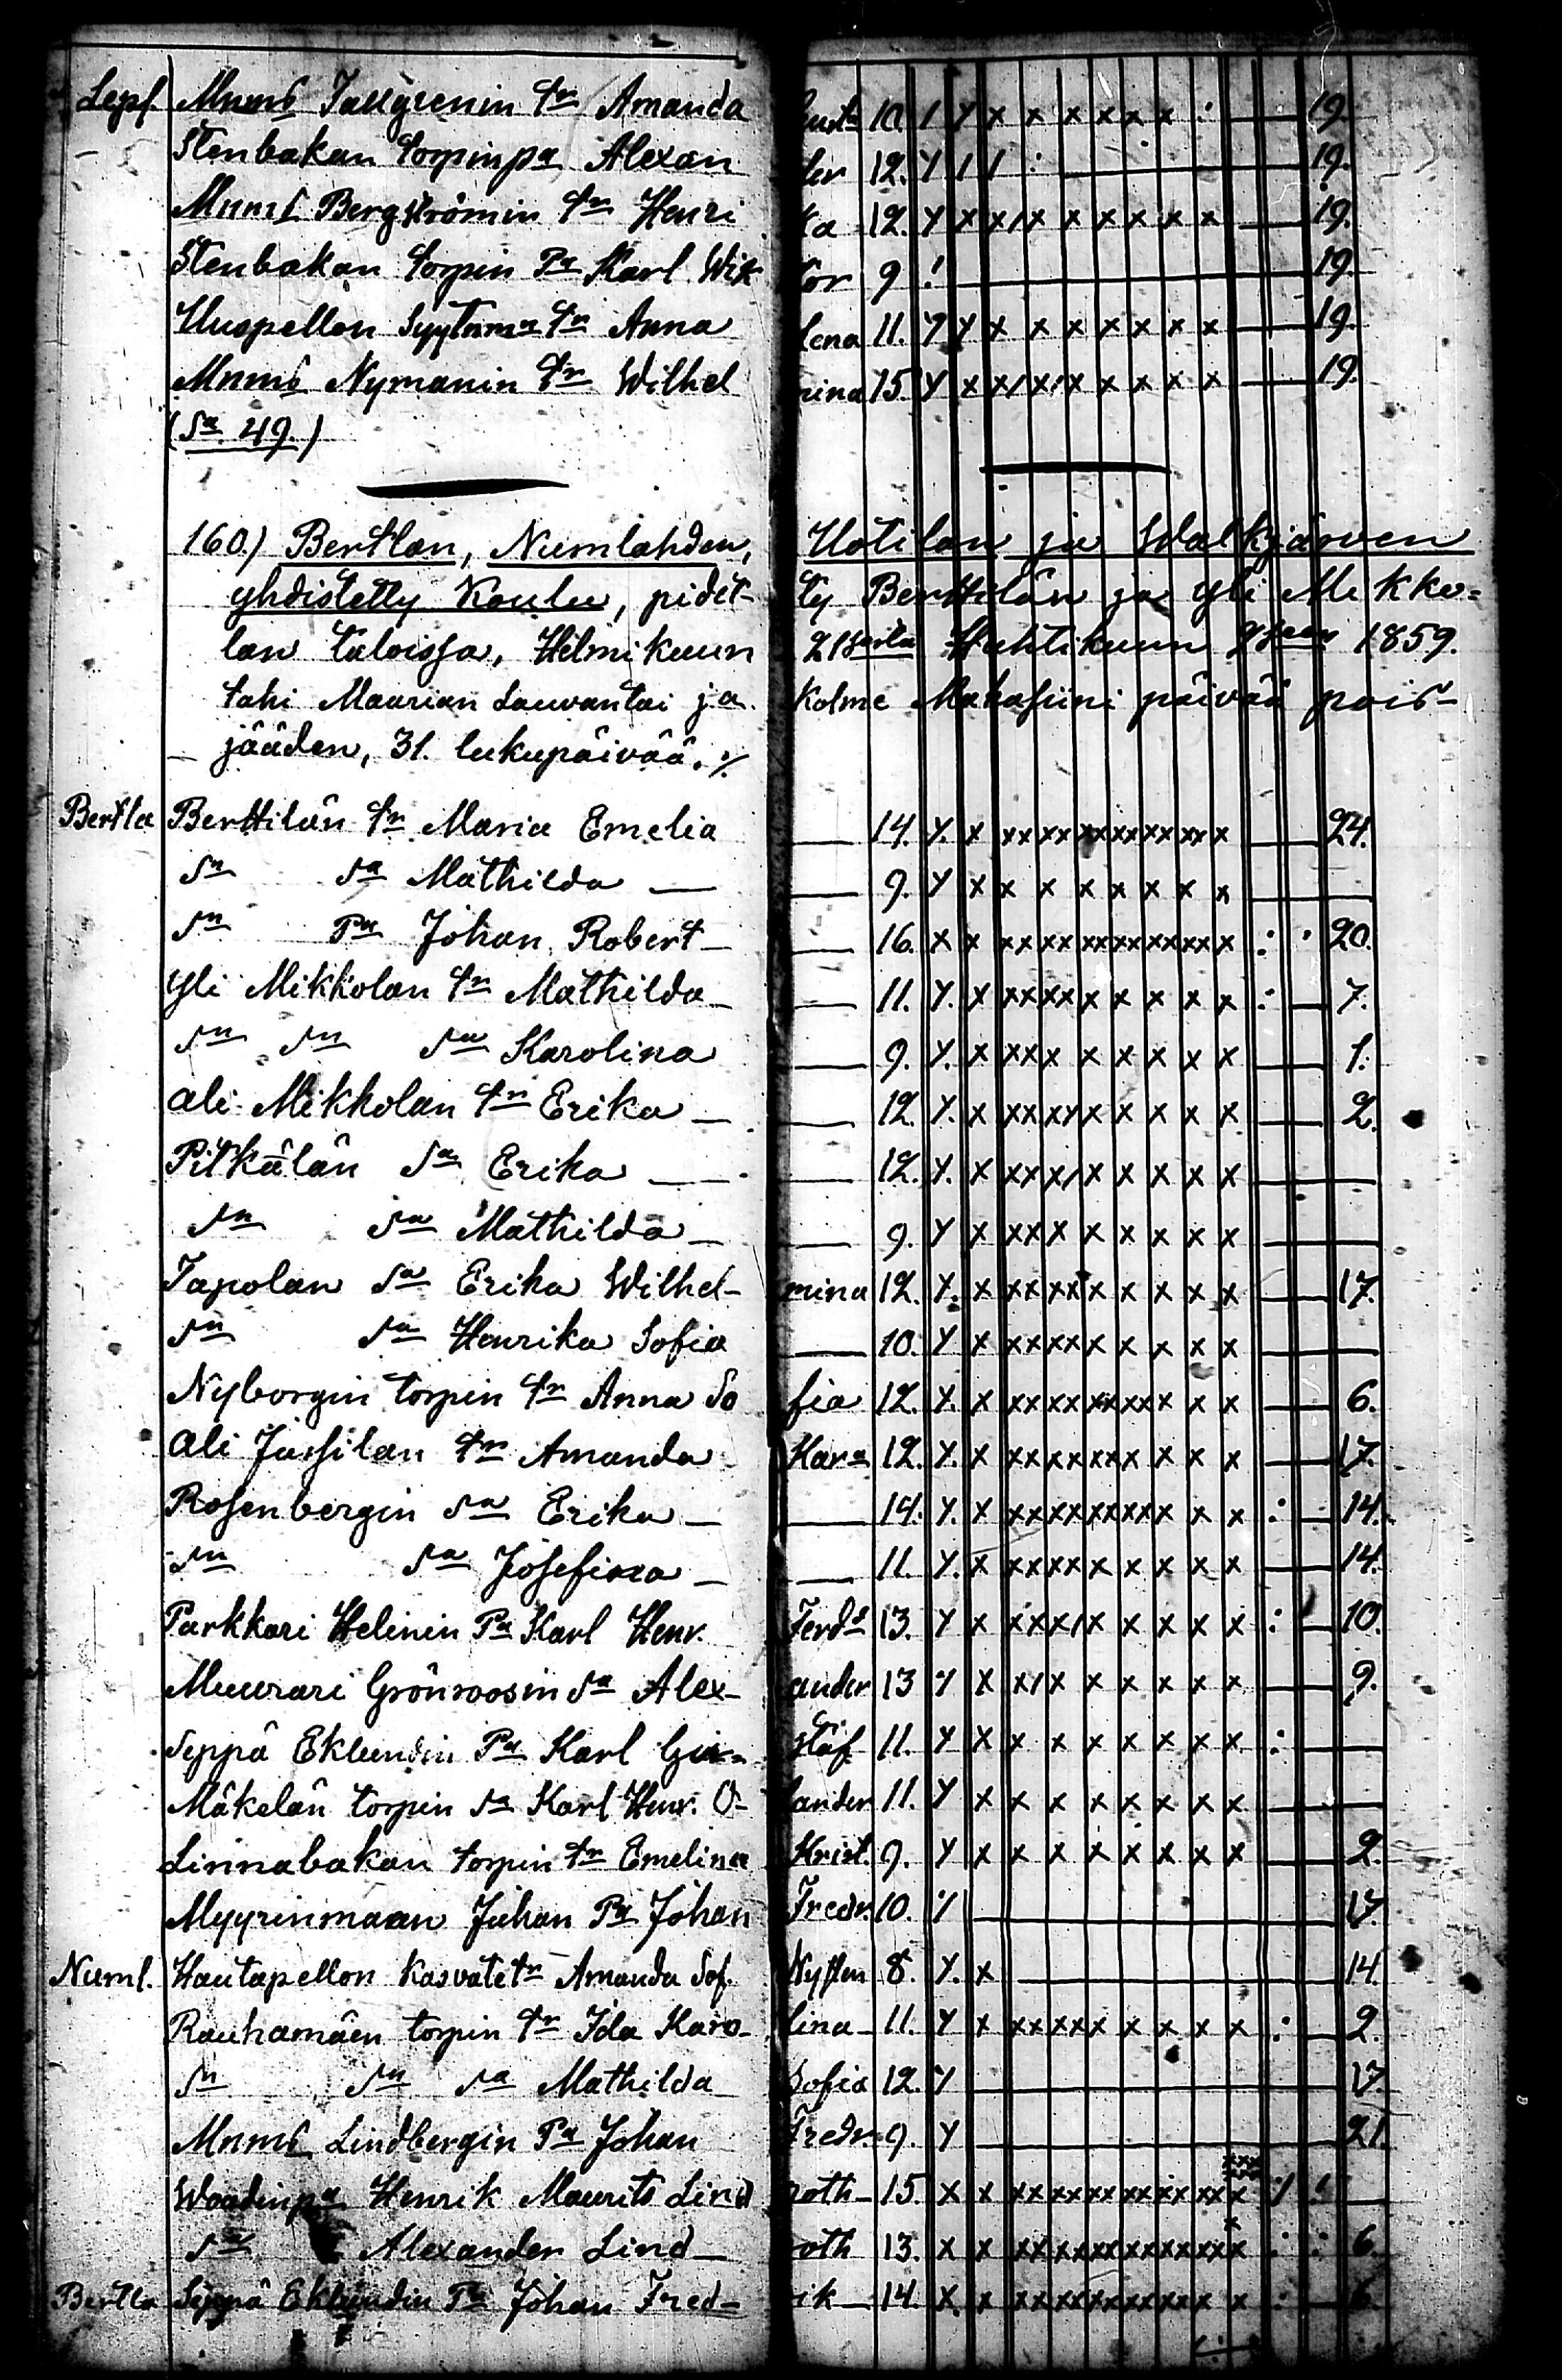 Lepf. Mnms Tallgrenin tr Amanda Gusta 10. 1 Y x x x x x x : — 19.
Stenbakan torpin pa Alexan der 12. Y 1 1 : — 19.
Mnms Bergströmin tr Henri ka 12. Y x x/x x x x x x — 19.
Stenbakan torpin Pa Karl Wik tor 9 ! — 19.
Uuspellon Syytinm tr Anna Lena 11. Y Y x x x x x x x — 19.
Mnms Nymanin tr Wilhel mina 15. Y x x/x/x x x x x — 19.
(Sa 49.)
160.) Bertlan, Numlahden, Uotilan ja Walkjärven
yhdistetty Koulu, pidet- ty Berttilän ja yli Mikko=
lan taloissa, Helmikuun 21seta Huhtikuun 9seen 1859.
tahi Maarian Lauvantai ja kolme Makasiini päivää pois-
jääden, 31. lukupäivää. ./.
Bertla Berttilän tr Maria Emelia — 14. Y. x xx xx xx xx xx xx x — 24.
sn sa Mathilda — 9. Y x x x x x x x x —
sn Pa Johan Robert — 16. x x xx xx xx xx xx xx x : · 20.
Yli Mikkolan tr Mathilda — 11. Y. x xx xx x x x x x : — 7.
sn sn sa Karolina — 9. Y. x xx x x x x x x — 1.
Ali Mikkolan tr Erika — 12. Y. x xx xy x x x x x — 2.
Pitkälän sa Erika — 12. Y. x xx x/ x x x x x —
sn sa Mathilda — 9. Y x xx x x x x x x —
Tapolan sa Erika Wilhel- mina 12. Y. x xx xx x x x x x — 17.
sn sa Henrika Sofia — 10. Y x xx xx x x x x x —
Nyborgin torpin tr Anna So fia 12. Y. x xx xx xx xx x x x — 6.
Ali Jussilan tr Amanda Kara 12. Y. x xx xx xx x x x x — 17.
Rosenbergin sa Erika — 14. Y. x xx xx xx xx x x x : — 14.
sn sa Josefina — 11. Y. x xx xx x x x x x — 14.
Parkkari Helinin Pa Karl Henr. Ferdd 13. Y x xx x/ x x x x x : — 10.
Muurari Grönroosin sa Alex- ander 13 Y x x/ x x x x x x — 9.
Seppä Eklundin Pa Karl Gu= staf 11. Y x x x x x x x x : —
Mäkelän torpin sa Karl Henr. O- lander 11. Y x x x x x x x x —
Linnabakan torpin tr Emelina Krist. 9. Y x x x x x x x x — 2.
Myyrinmaan Juhan Pa Johan Fredr. 10. Y — 17.
Numl. Hautapellon kasvatetr Amanda Sof. Nysten 8. Y. x — 14.
Rauhamäen torpin tr Ida Karo- lina — 11. Y x xx xx x x x x x : — 2.
sn sn sa Mathilda Sofia 12. Y — 17.
Mnms Lindbergin Pa Johan Fredr. 9. Y — 21.
Waadinpa Henrik Maurits Lind roth — 15. x x xx xx xx xx xx xx x : ! —
sa Alexander Lind- roth 13. x x xx xx xx xx xx xx x : : 6.
Bertla Seppä Eklundin Pa Johan Fred- rik — 14. x. x xx xx xx xx xx x x : — 6.